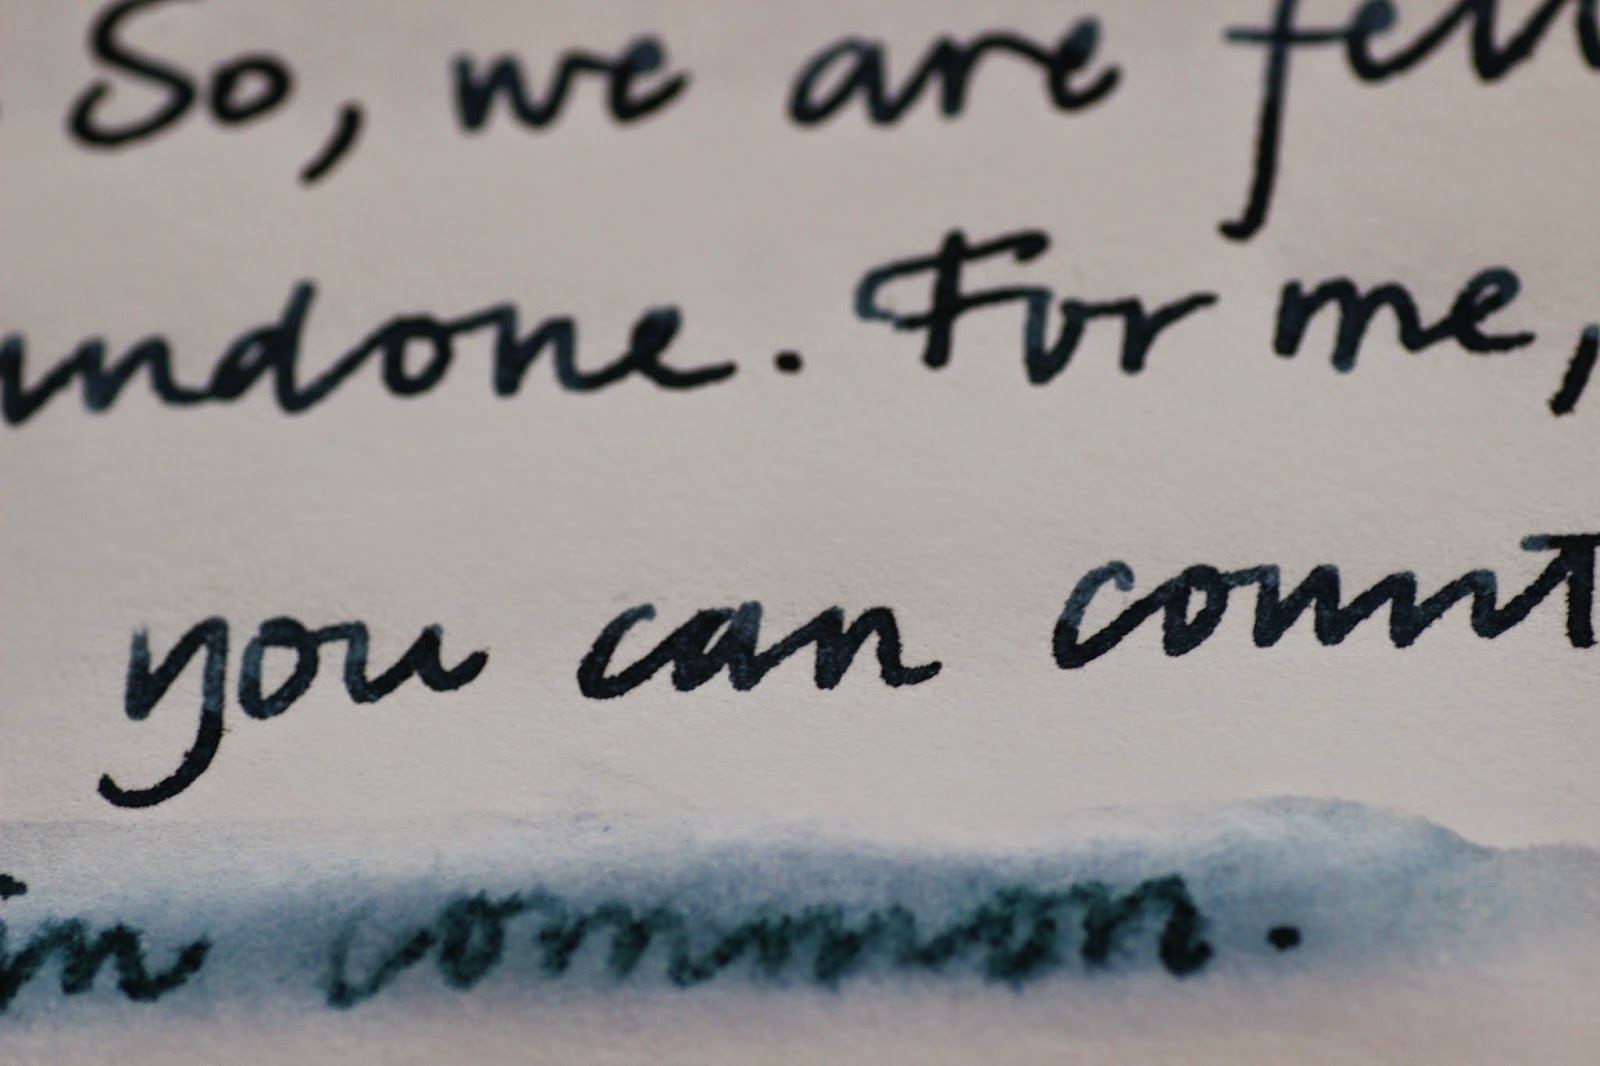 So, we are fell
undone. For me,
you can count
in common.